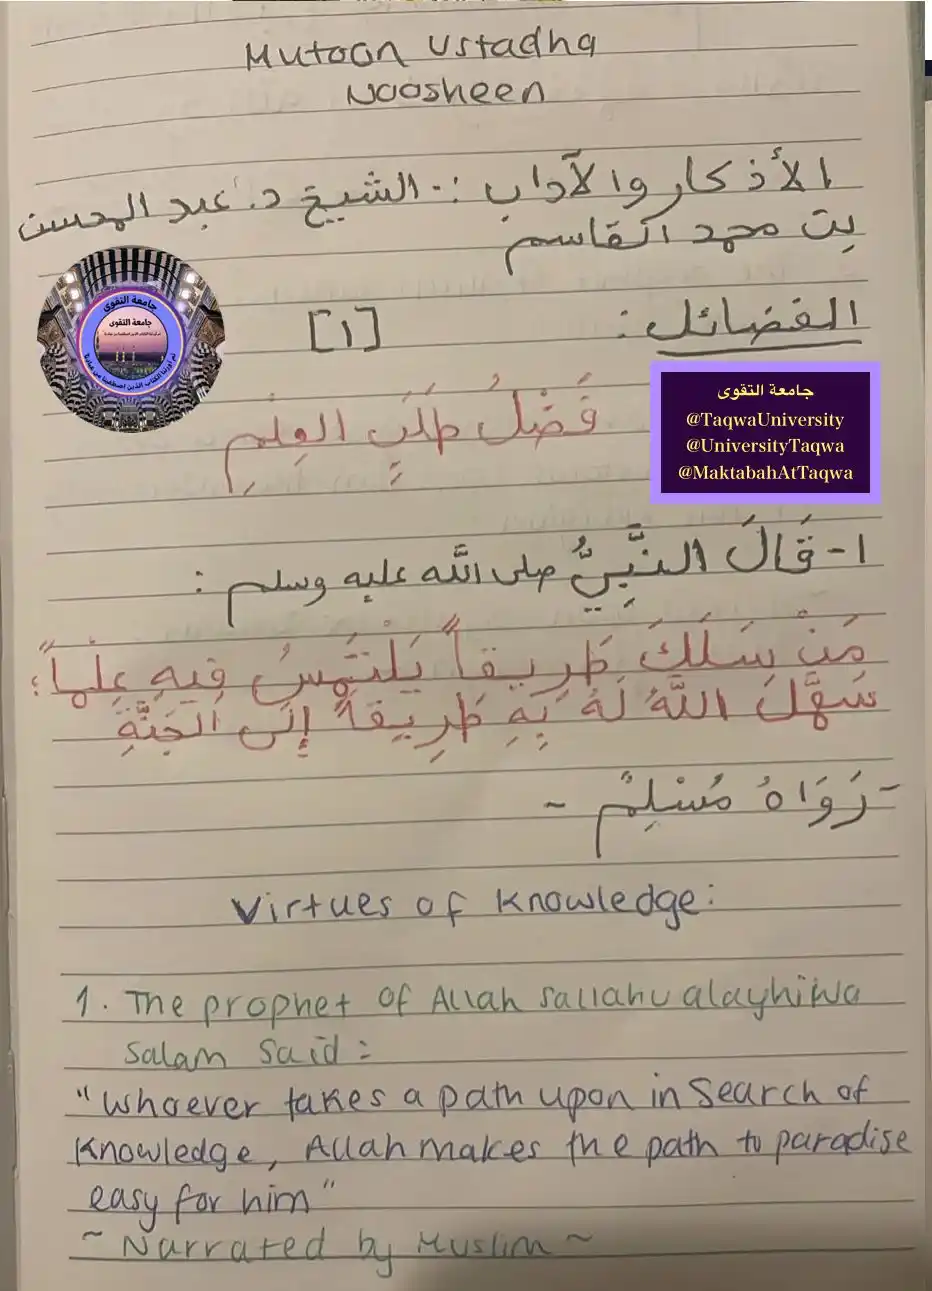 Mutoon Ustadha
Noosheen
الأذكار والآداب :- الشيخ د. عبد المحسن
بن محمد القاسم
الفضائل : [١]
فَضْلُ طَلَبِ العِلْمِ
جامعة التقوى
@TaqwaUniversity
@UniversityTaqwa
@MaktabahAtTaqwa
جامعة التقوى
جامعة التقوى
ثم أورثنا الكتاب الذين اصطفينا من عبادنا
١- قَالَ النَّبِيُّ صلى اللَّه عليه وسلم :
مَنْ سَلَكَ طَرِيقاً يَلْتَمِسُ فِيهِ عِلْماً؛
سَهَّلَ اللَّهُ لَهُ بِهِ طَرِيقاً إِلَى الجَنَّةِ
- رَوَاهُ مُسْلِمٌ ~
Virtues of Knowledge:
1. The prophet of Allah sallahu alayhi wa
Salam Said :
"Whoever takes a path upon in Search of
Knowledge, Allah makes the path to paradise
easy for him"
~ Narrated by Muslim ~